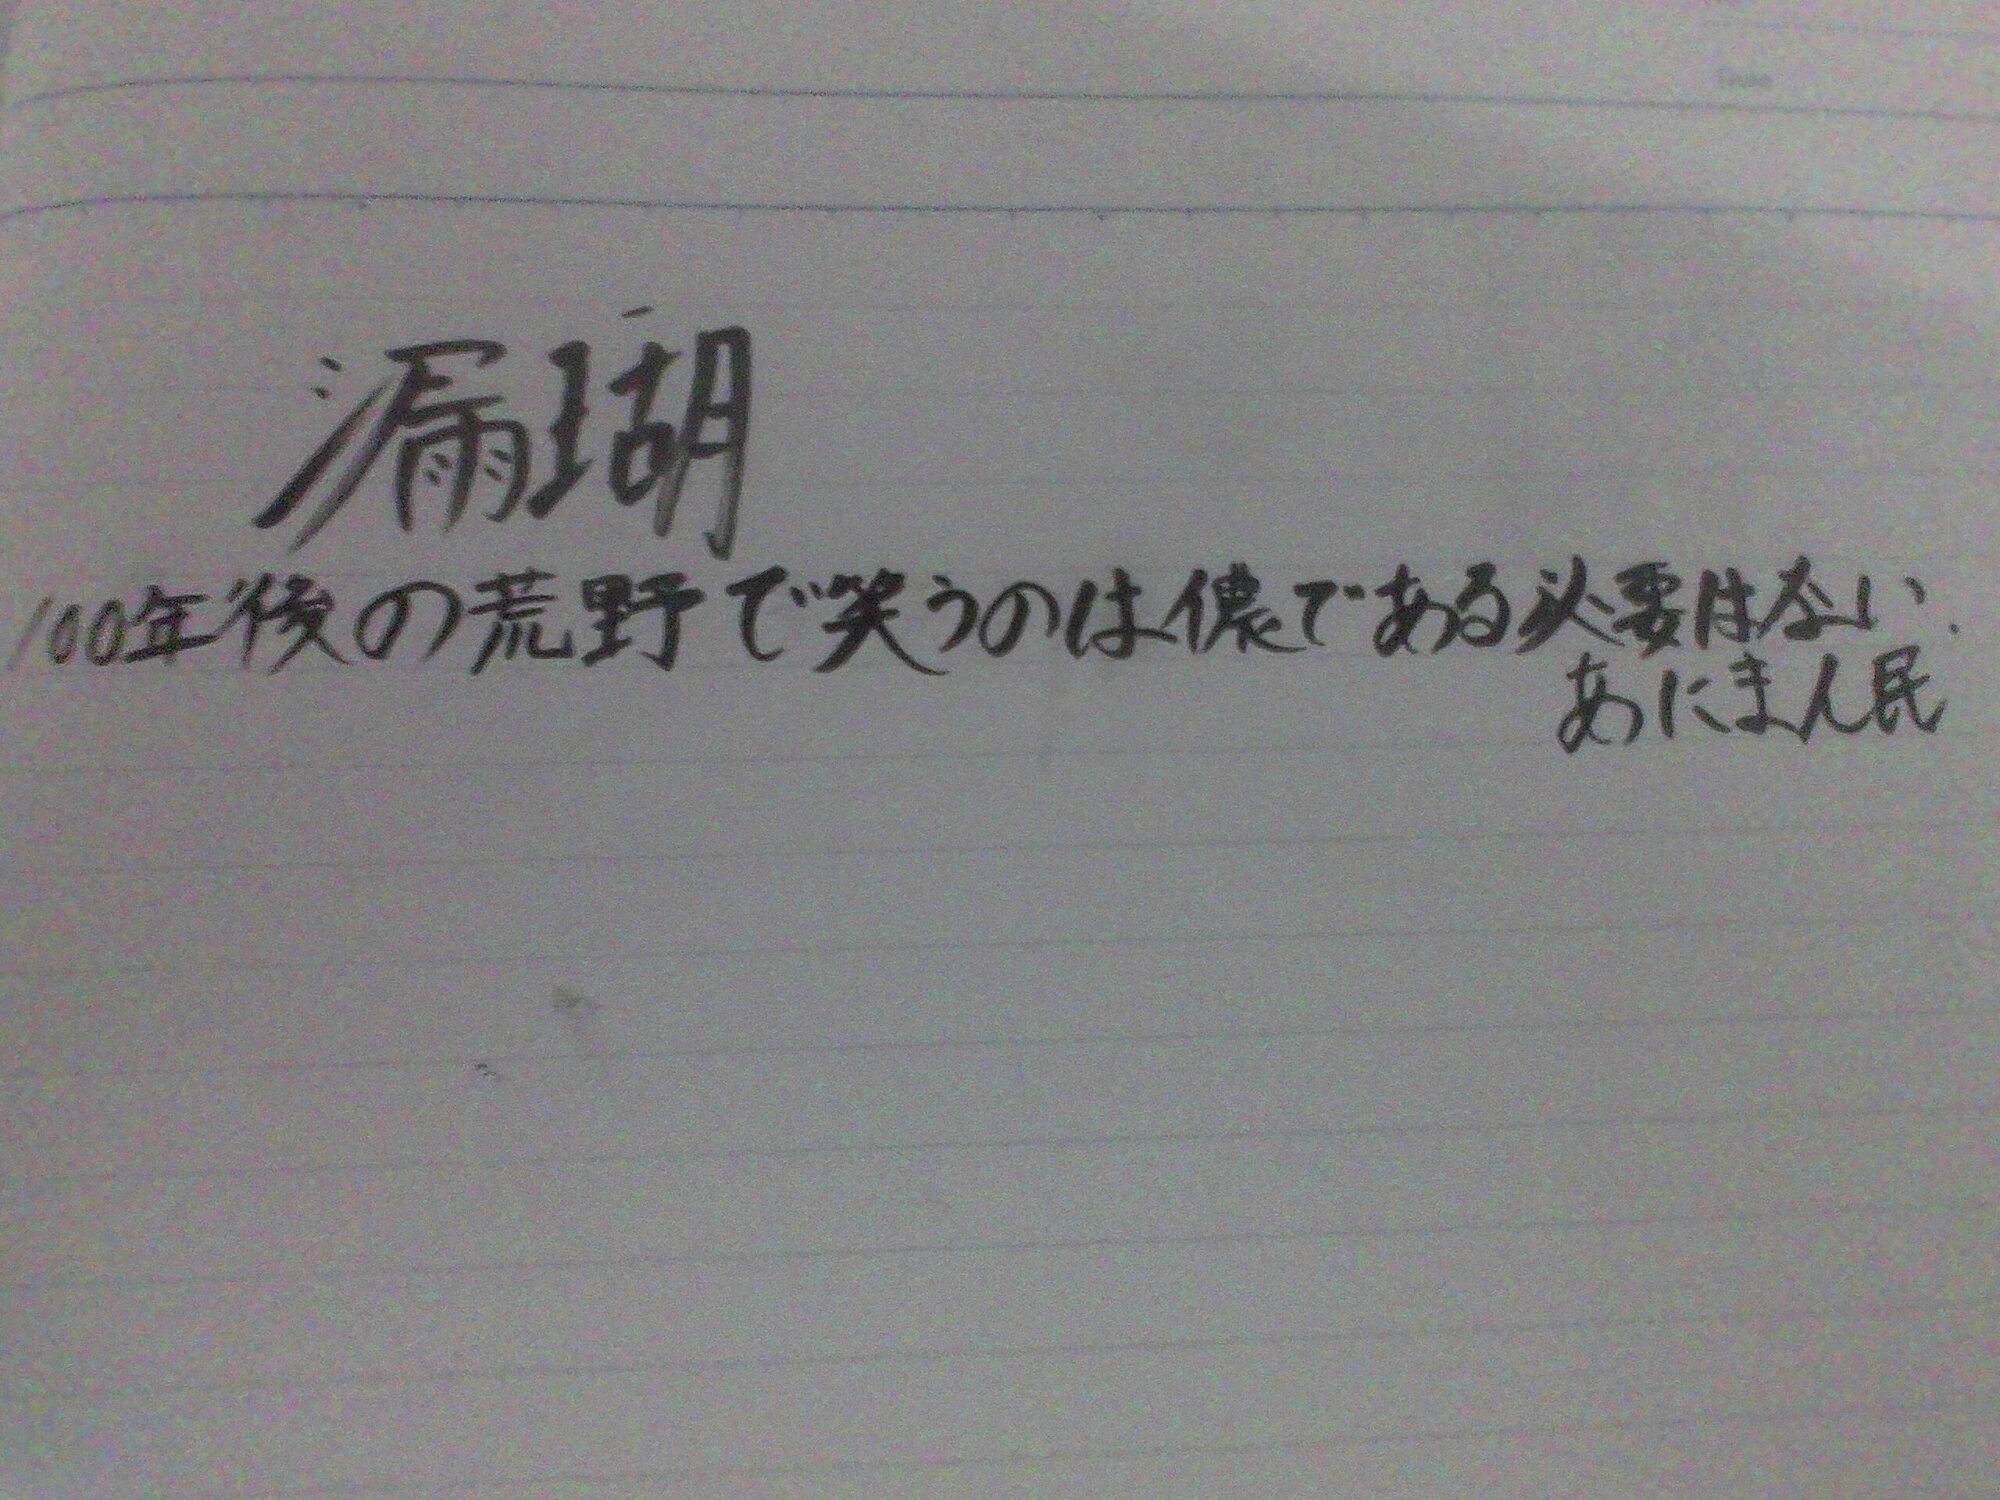 Date
漏瑚
100年後の荒野で笑うのは儂である必要はない.
あにまん民